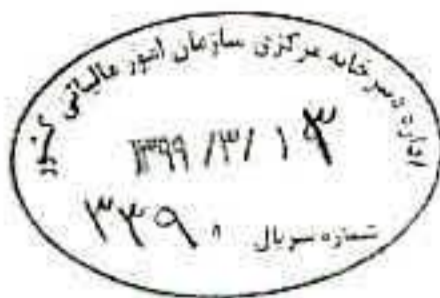 اداره دبیرخانه مرکزی سازمان امور مالیاتی کشور
۱۳۹۹/۳/۱۳
شماره سریال ۳۳۹۰